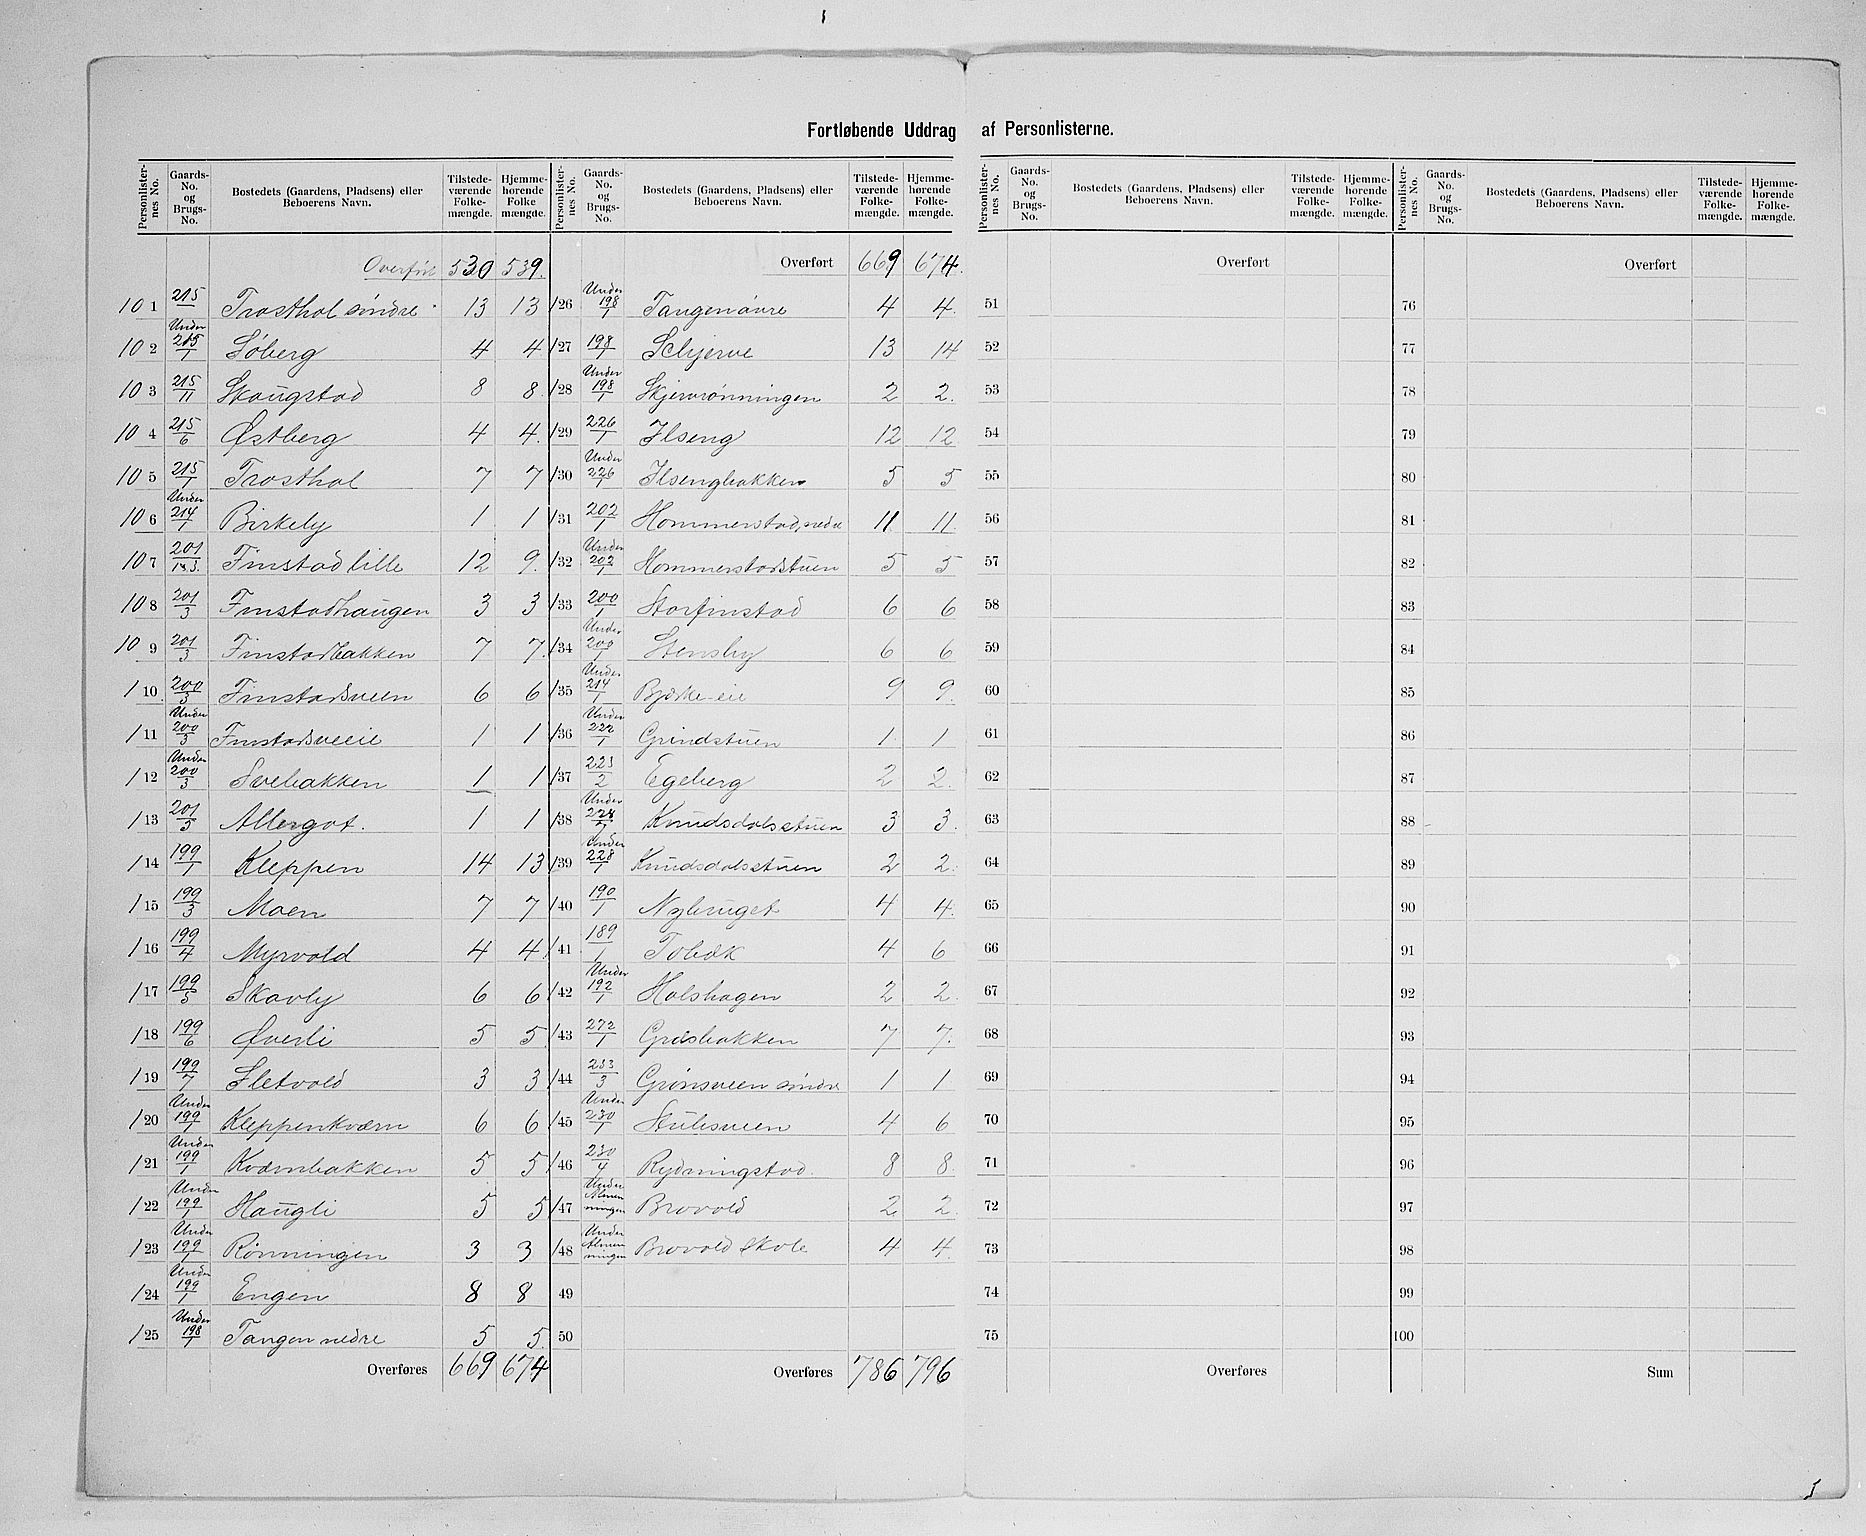 Fortløbende Uddrag af Personlisterne.
Personlister-nes No. Gaards-No. og Brugs-No. Bostedets (Gaardens, Pladsens) eller Beboerens Navn. Tilstede-værende Folke-mængde. Hjemme-hørende Folke mængde.
Overført 530 539.
101 215 Trosthol söndre 13 13
102 Under 215/1 Söberg 4 4
103 215/11 Skougstad 8 8
104 215/6 Østberg 4 4.
105 215/1 Trosthol 7 7
106 Under 214/1 Birkely 1 1
107 201/1 Finstad lille 12 9.
108 201/3 Finstadhaugen 3 3
109 201/3 Finstadbakken 7 7.
110 200/3 Finstadsveen 6 6
111 Under 200/3 Finstadsveeie 1 1
112 Under 200/3 Svebakken 1 1
113 201/5 Allergot. 1 1
114 199/1 Kleppen 14 13
115 199/3 Moen 7 7
116 199/4 Myrvold 4 4
117 199/5 Skovly 6 6
118 199/6 Øverli 5 5
119 199/7 Sletvold 3 3
120 Under 199/1 Kleppenkværn 6 6
121 Under 199/1 Kværnbakken 5 5
122 Under 199/1 Haugli 5 5
123 Under 199/1 Rönningen 3 3
124 Under 199/1 Engen 8 8
125 Under 198/1 Tangen nedre 5 5
Overføres 669 674
Personlister-nes No. Gaards-No. og Brugs-No. Bostedets (Gaardens, Pladsens) eller Beboerens Navn. Tilstede-værende Folke-mængde. Hjemme-hørende Folke-mængde.
Overført 669 674.
126 Under 198/1 Tangen övre 4 4.
127 198/1 Schjerve 13 14
128 Under 198/1 Skjerverönningen 2 2.
129 226/1 Ilseng 12 12
130 Under 226/1 Ilsengbakken 5 5
131 202/1 Hommerstad, nedre 11 11.
132 Under 202/1 Hommerstadstuen 5 5
133 200/1 Storfinstad 6 6
134 Under 200/1 Stensby 6 6
135 Under 214/1 Bjørke-eie 9 9.
136 Under 222/1 Grindstuen 1 1
137 223/2 Egeberg 2 2.
138 Under Knudsdalsstuen 3 3.
139 Under 228/1 Knudsdalsstuen 2 2.
140 190/1 Nybruget 4 4.
141 189/1 Tobæk 4 6
142 Under 192/1 Holshagen 2 2.
143 272/1 Græsbakken 7 7.
144 233/3 Grönsveen söndre 1 1
145 Under 230/1 Stulisveen 4 6
146 230/4 Rydningstad. 8 8.
147 Under Almenningen Brovold 2 2.
148 Under Almenningen Brovold Skole 4 4.
49
50
Overføres 786 796
Personlister-nes No. Gaards-No. og Brugs-No. Bostedets (Gaardens, Pladsens) eller Beboerens Navn. Tilstede-værende Folke-mængde. Hjemme-hørende Folke-mængde.
Overført
51
52
53
54
55
56
57
58
59
60
61
62
63
64
65
66
67
68
69
70
71
72
73
74
75
Overføres
Personlister-nes No. Gaards-No. og Brugs-No. Bostedets (Gaardens, Pladsens) eller Beboerens Navn. Tilstede-værende Folke-mængde. Hjemme-hørende Folke-mængde.
Overført
76
77
78
79
80
81
82
83
84
85
86
87
88
89
90
91
92
93
94
95
96
97
98
99
100
Sum